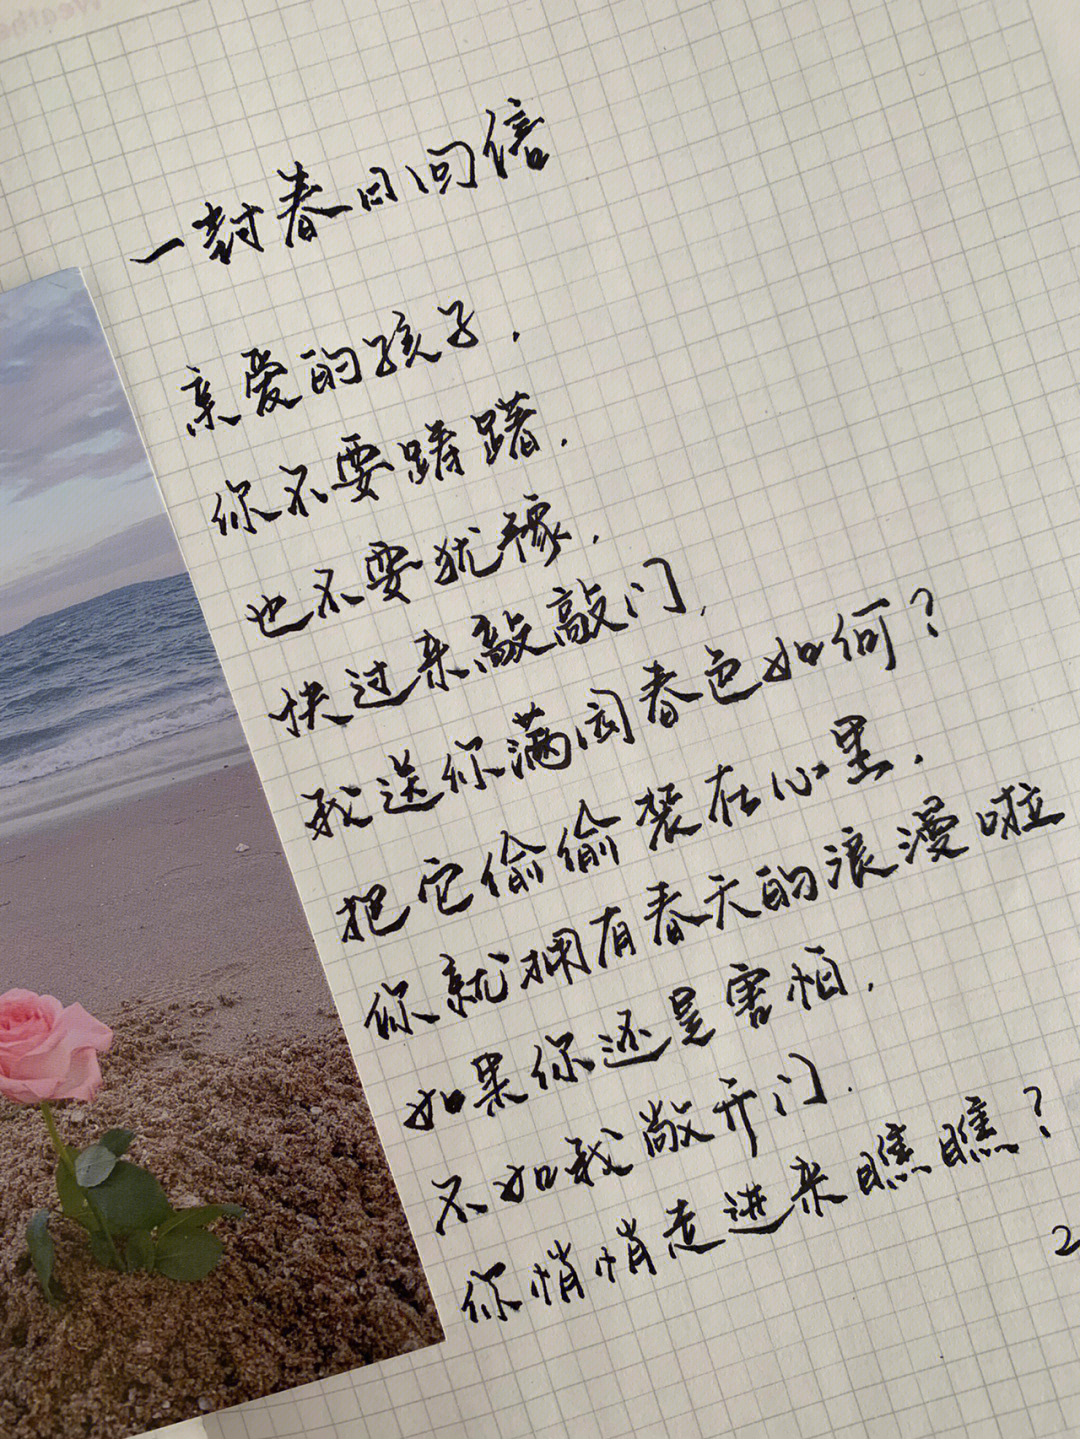 一封春日回信
亲爱的孩子，
你不要踌躇，
也不要犹豫，
快过来敲敲门，
我送你满园春色如何？
把它偷偷装在心里，
你就拥有春天的浪漫啦
如果你还是害怕，
不如我敞开门，
你悄悄走进来瞧瞧？
2